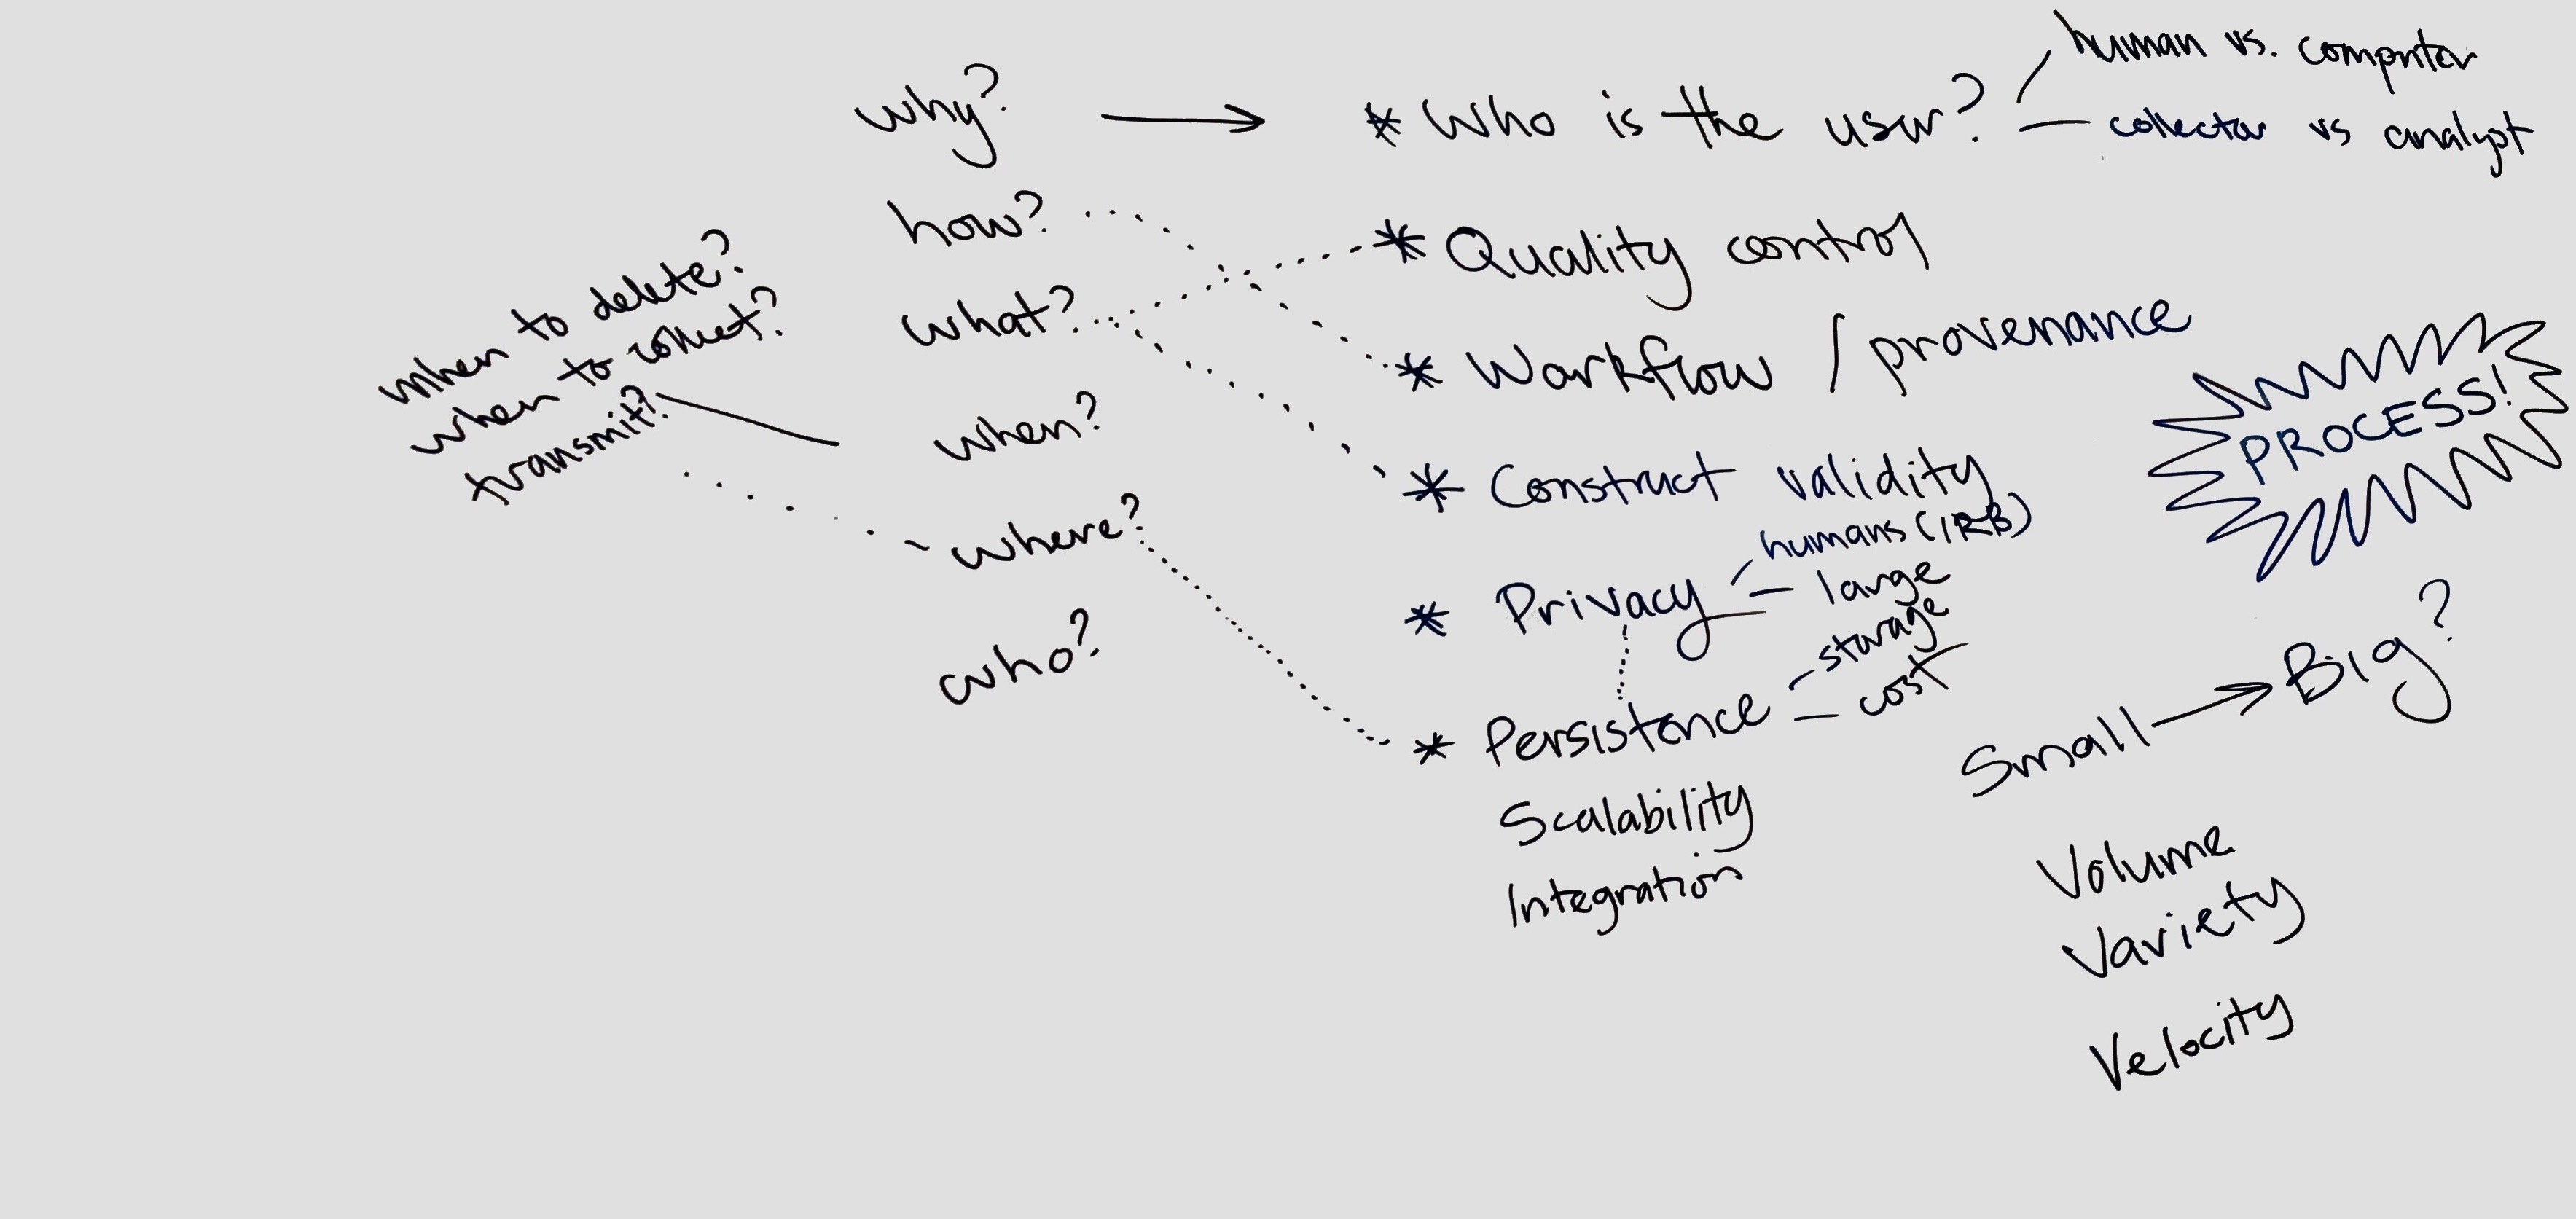 why?
how?
what?
when?
where?
who?
when to delete?
when to collect?
transmit?
* Who is the user?
human vs. computer
collector vs analyst
* Quality control
* Workflow / provenance
* Construct validity
* Privacy
humans (IRB)
large
* Persistence
storage
cost
Scalability
Integration
PROCESS!
Small → Big?
Volume
Variety
Velocity